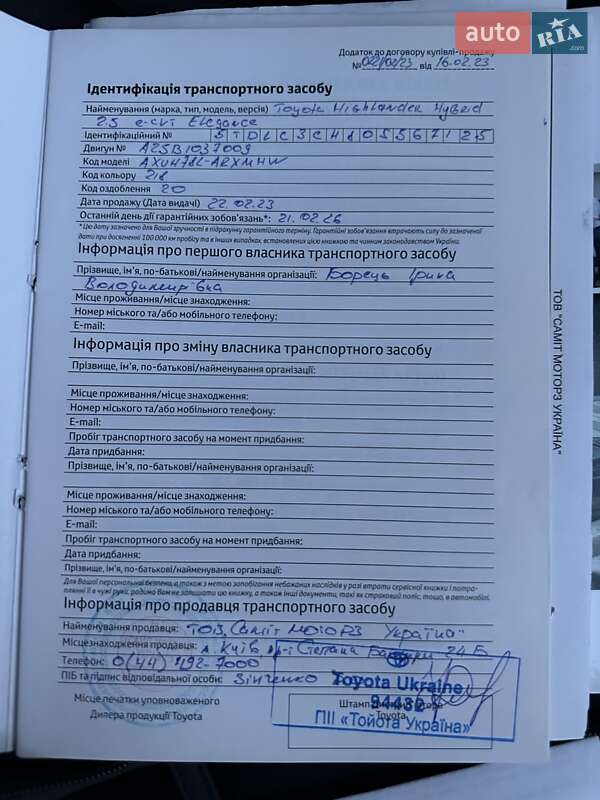 auto RIA .com
Додаток до договору купівлі-продажу
№ 02/02/23 від 16.02.23
Ідентифікація транспортного засобу
Найменування (марка, тип, модель, версія) Toyota Highlander Hybrid
2.5 e-CVT Elegance
Ідентифікаційний № 5TDLC3CH80S567125
Двигун № A25B1037009
Код моделі AXUH78L-ARXMHW
Код кольору 218
Код оздоблення 20
Дата продажу (Дата видачі) 22.02.23
Останній день дії гарантійних зобов'язань*: 21.02.26
*Цю дату зазначено для Вашої зручності в підрахунку гарантійного терміну. Гарантійні зобов'язання втрачають силу до зазначеної
дати при досягненні 100 000 км пробігу та в інших випадках, встановлених цією книжкою та чинним законодавством України.
Інформація про першого власника транспортного засобу
Прізвище, ім'я, по-батькові/найменування організації: Борець Ірина
Володимирівна
Місце проживання/місце знаходження:
Номер міського та/або мобільного телефону:
E-mail:
Інформація про зміну власника транспортного засобу
Прізвище, ім'я, по-батькові/найменування організації:
Місце проживання/місце знаходження:
Номер міського та/або мобільного телефону:
E-mail:
Пробіг транспортного засобу на момент придбання:
Дата придбання:
Прізвище, ім'я, по-батькові/найменування організації:
Місце проживання/місце знаходження:
Номер міського та/або мобільного телефону:
E-mail:
Пробіг транспортного засобу на момент придбання:
Дата придбання:
Прізвище, ім'я, по-батькові/найменування організації:
Для Вашої персональної безпеки, а також з метою запобігання небажаних наслідків у разі втрати сервісної книжки і потрап-
ляння її в чужі руки, радимо Вам не залишати цю книжку, а також інші документи, такі як страховий поліс, тощо, в автомобілі.
Інформація про продавця транспортного засобу
Найменування продавця: ТОВ "Саміт Моторз Україна"
Місцезнаходження продавця: м. Київ, пр-т Степана Бандери 24 Б
Телефон: 0(44) 492-7000
ПІБ та підпис відповідальної особи: Зінченко
Toyota Ukraine
94432
ПІІ «Тойота Україна»
Місце печатки уповноваженого
Дилера продукції Toyota
Toyota
ТОВ "САМІТ МОТОРЗ УКРАЇНА"